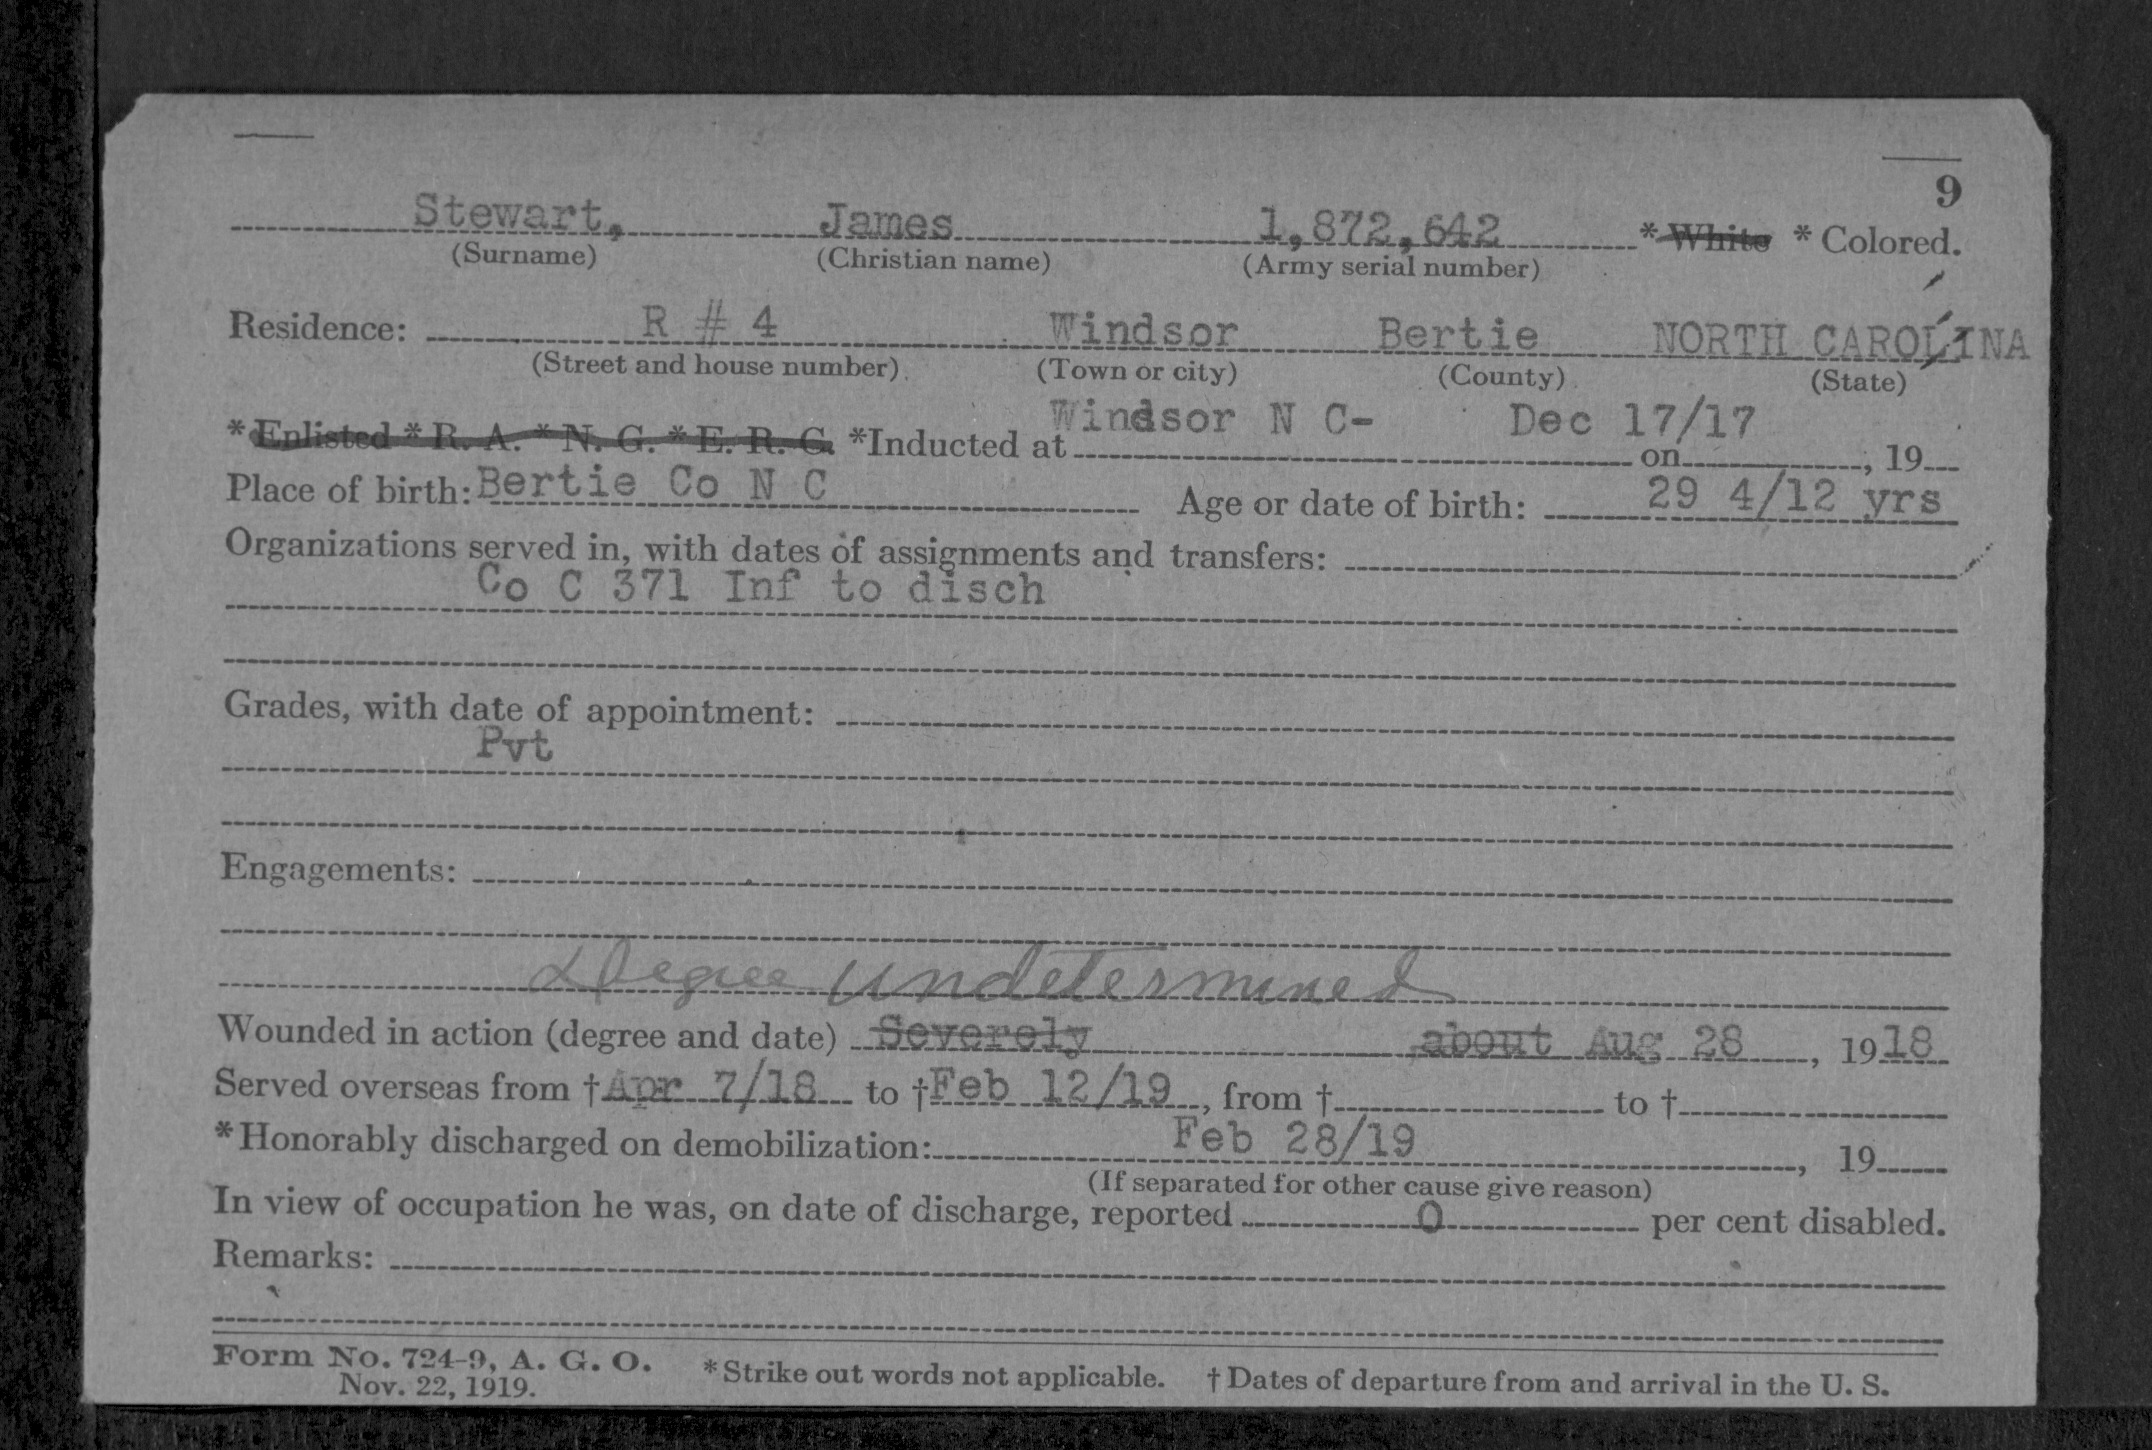 9
Stewart, James 1,872,642 *White *Colored.
(Surname) (Christian name) (Army serial number)
Residence: R # 4 Windsor Bertie NORTH CAROLINA
(Street and house number) (Town or city) (County) (State)
*Enlisted *R. A. *N. G. *E. R. C. *Inducted at Windsor N C- on Dec 17/17, 19
Place of birth: Bertie Co N C Age or date of birth: 29 4/12 yrs
Organizations served in, with dates of assignments and transfers:
Co C 371 Inf to disch
Grades, with date of appointment:
Pvt
Engagements:
Degree undetermined
Wounded in action (degree and date) Severely about Aug 28, 1918
Served overseas from †Apr 7/18 to †Feb 12/19, from † to †
*Honorably discharged on demobilization: Feb 28/19, 19
(If separated for other cause give reason)
In view of occupation he was, on date of discharge, reported 0 per cent disabled.
Remarks:
Form No. 724-9, A. G. O. *Strike out words not applicable. †Dates of departure from and arrival in the U. S.
Nov. 22, 1919.